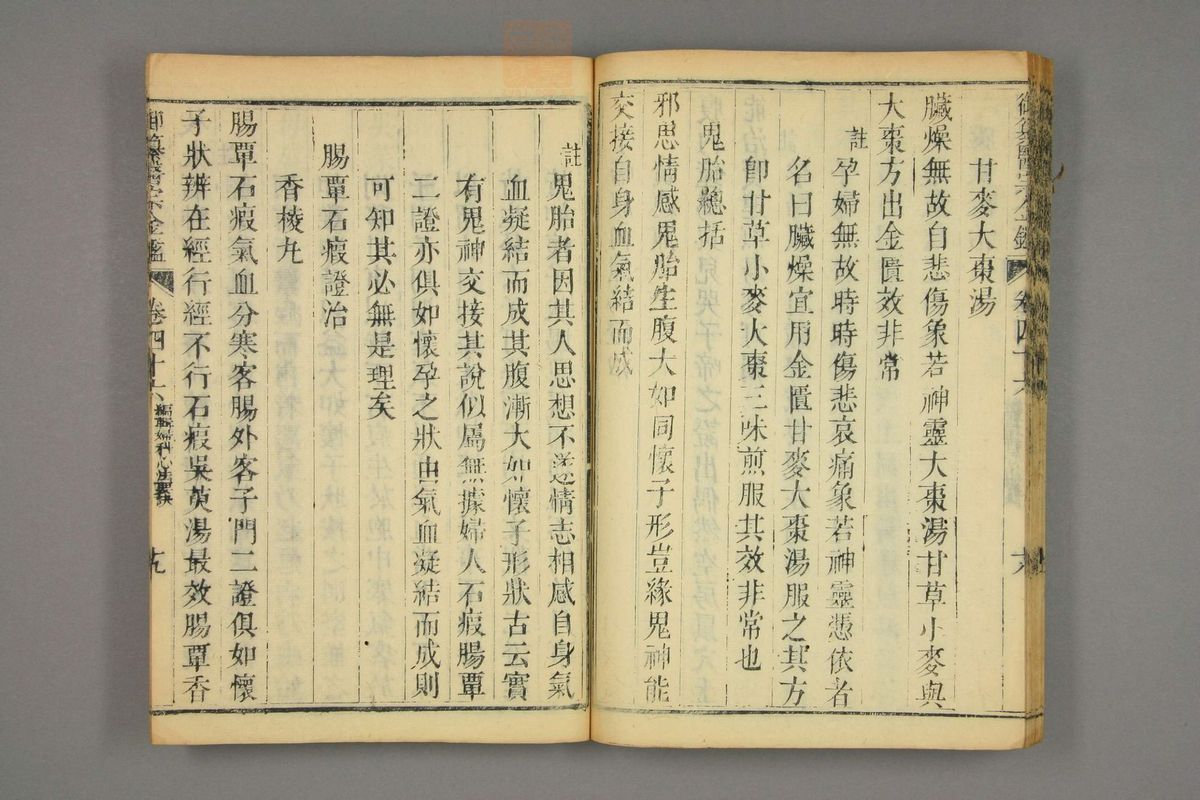 御纂醫宗金鑑 卷四十六
甘麥大棗湯
臟燥無故自悲傷象若神靈大棗湯甘草小麥與
大棗方出金匱效非常
註 孕婦無故時時傷悲哀痛象若神靈憑依者
名曰臟燥宜用金匱甘麥大棗湯服之其方
卽甘草小麥大棗三味煎服其效非常也
鬼胎總括
邪思情感鬼胎生腹大如同懷子形豈緣鬼神能
交接自身血氣結而成
註 鬼胎者因其人思想不遂情志相感自身氣
血凝結而成其腹漸大如懷子形狀古云實
有鬼神交接其說似屬無據婦人石瘕腸覃
二證亦俱如懷孕之狀由氣血凝結而成則
可知其必無是理矣
腸覃石瘕證治
香棱丸
腸覃石瘕氣血分寒客腸外客子門二證俱如懷
子狀辨在經行經不行石瘕吳茰湯最效腸覃香
御纂醫宗金鑑 卷四十六 編輯婦科心法要訣 十九